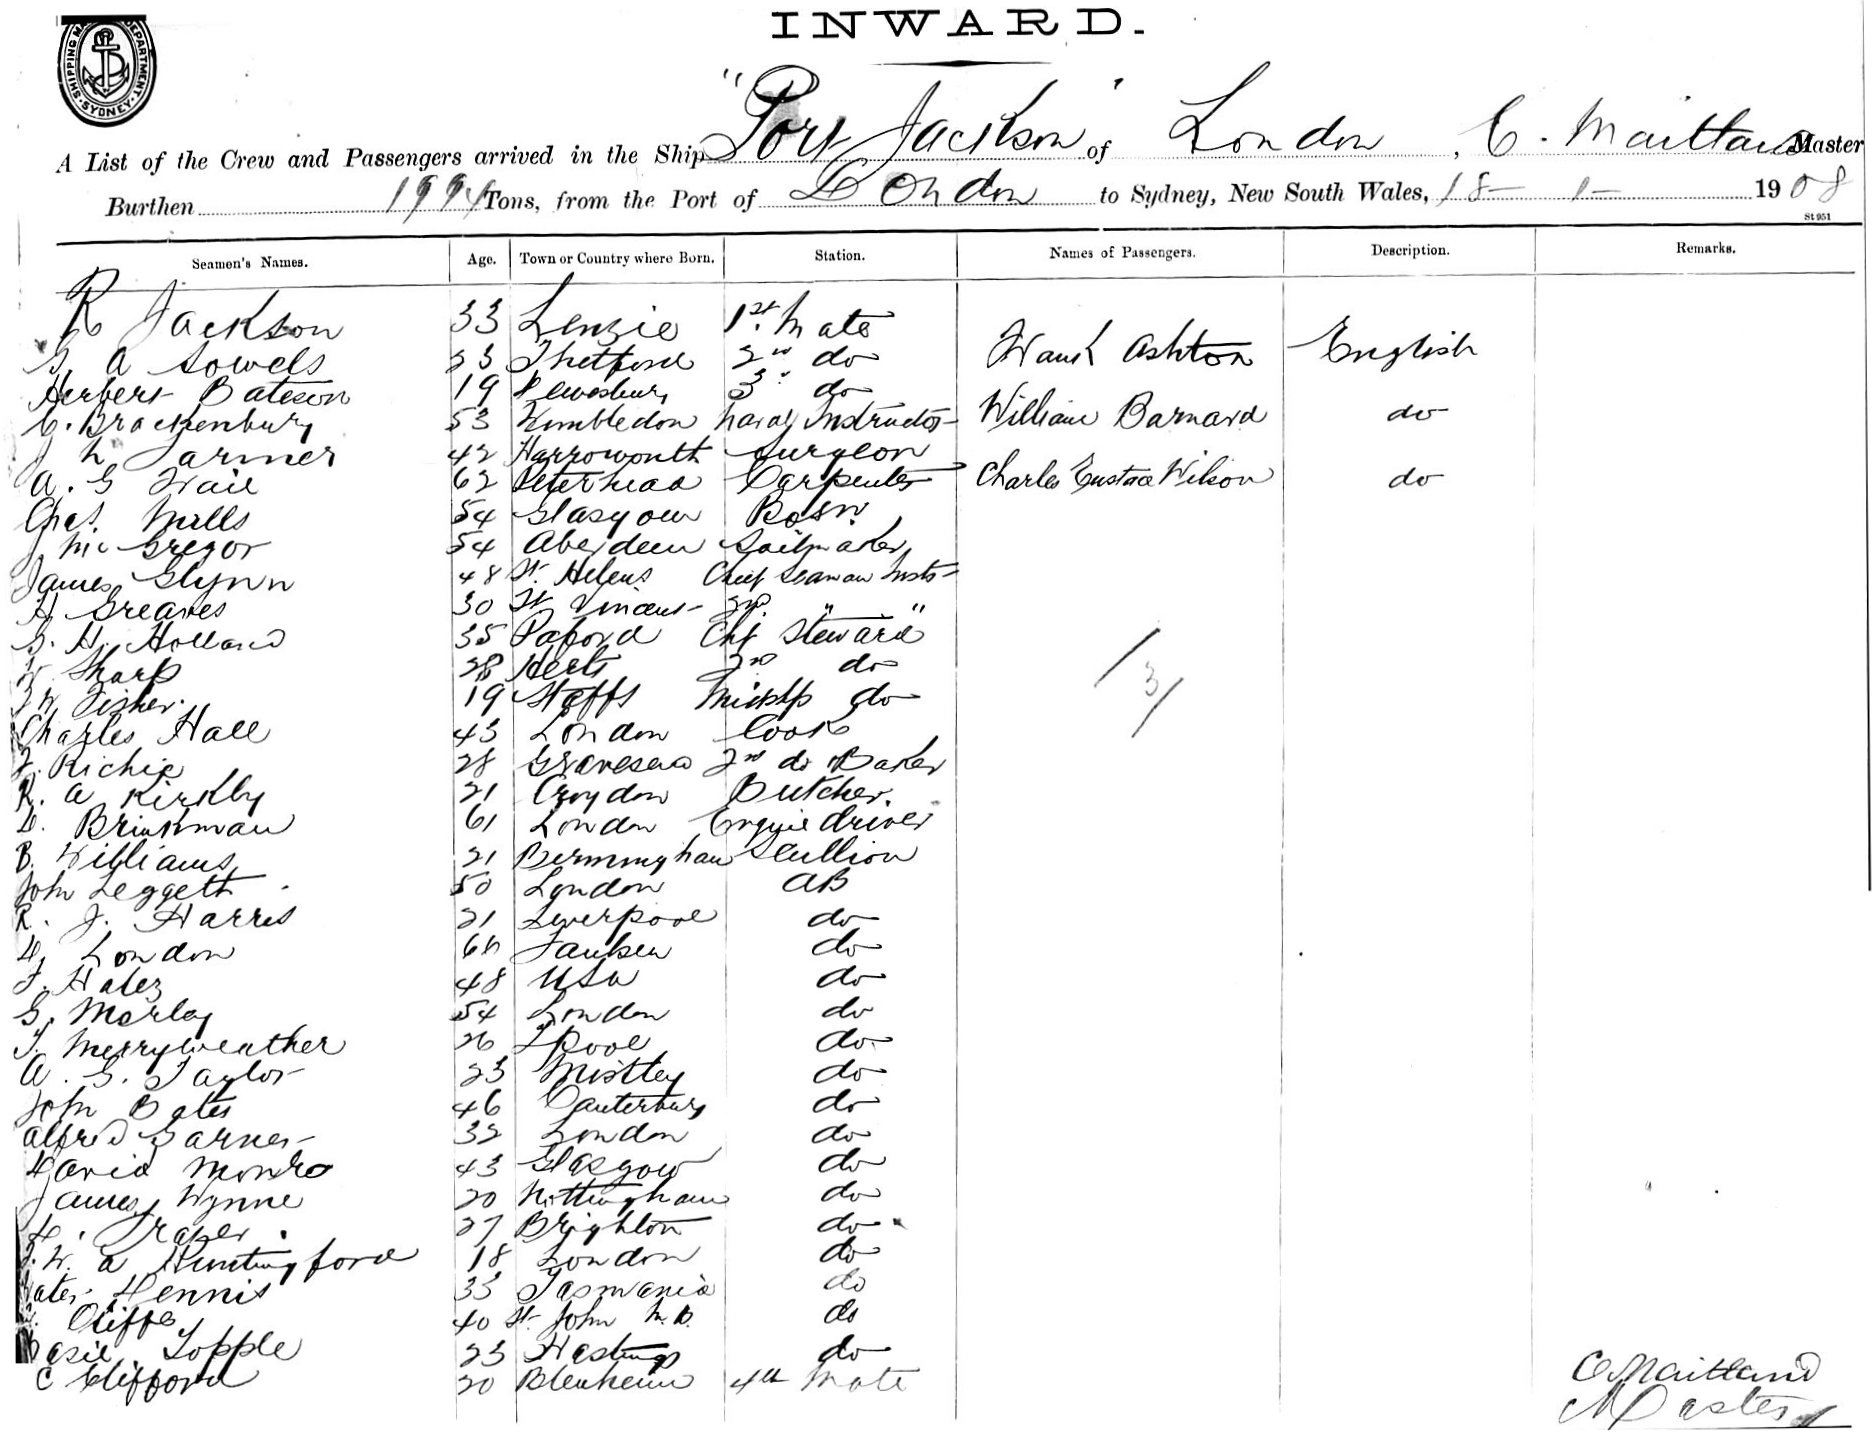 INWARD.
SHIPPING DEPARTMENT. SYDNEY
A List of the Crew and Passengers arrived in the Ship "Port Jackson" of London, C. Maitland Master
Burthen Tons, from the Port of London to Sydney, New South Wales, 18 - 1 - 1908
St 951
Seamen's Names. Age. Town or Country where Born. Station. Names of Passengers. Description. Remarks.
R Jackson 33 Lenzie 1st. Mate
G. A Sowels 23 Thetford 2nd do Frank Ashton English
Herbert Bateson 19 3 do
C. Brackenbury 53 Wimbledon Naval Instructor William Barnard do
J N Farmer 42 Surgeon
A. G Trail 62 Peterhead Carpenter Charles Eustace Wilson do
Chas. Mills 54 Glasgow Bosn.
J. McGregor 54 Aberdeen Sailmaker
James Glynn 48 St. Helens Chief Seaman Instr
H Greaves 30 St Vincent 2nd. " "
G. H. Holland 35 Chf Steward
W Sharp 28 Herts 2nd do
Fisher. 19 Staffs do
Charles Hall 43 London Cook
F. Richie 28 Gravesend 2nd do & Baker
R. A Kirkby 21 Croydon Butcher.
D. Brinkman 61 London Engine driver
B. Williams 21 Bermingham Scullion
John Leggett 50 London AB
R. J. Harris 21 Liverpool do
H. London do
48 USA do
G. Morley 54 London do
T. Merryweather 26 LPool do
A. G. Taylor 23 Mistley do
John Bates 46 Canterbury do
Alfred Garner 32 London do
David Monro 43 Glasgow do
James Wynne 20 Nottingham do
27 Brighton do
W. A Huntingford 18 London do
Dennis 33 Tasmania do
Cliffe 40 St John N.B. do
Basil Topple 23 Hastings do
C Clifford 20 Blenheim 4th Mate
3
C Maitland
Master